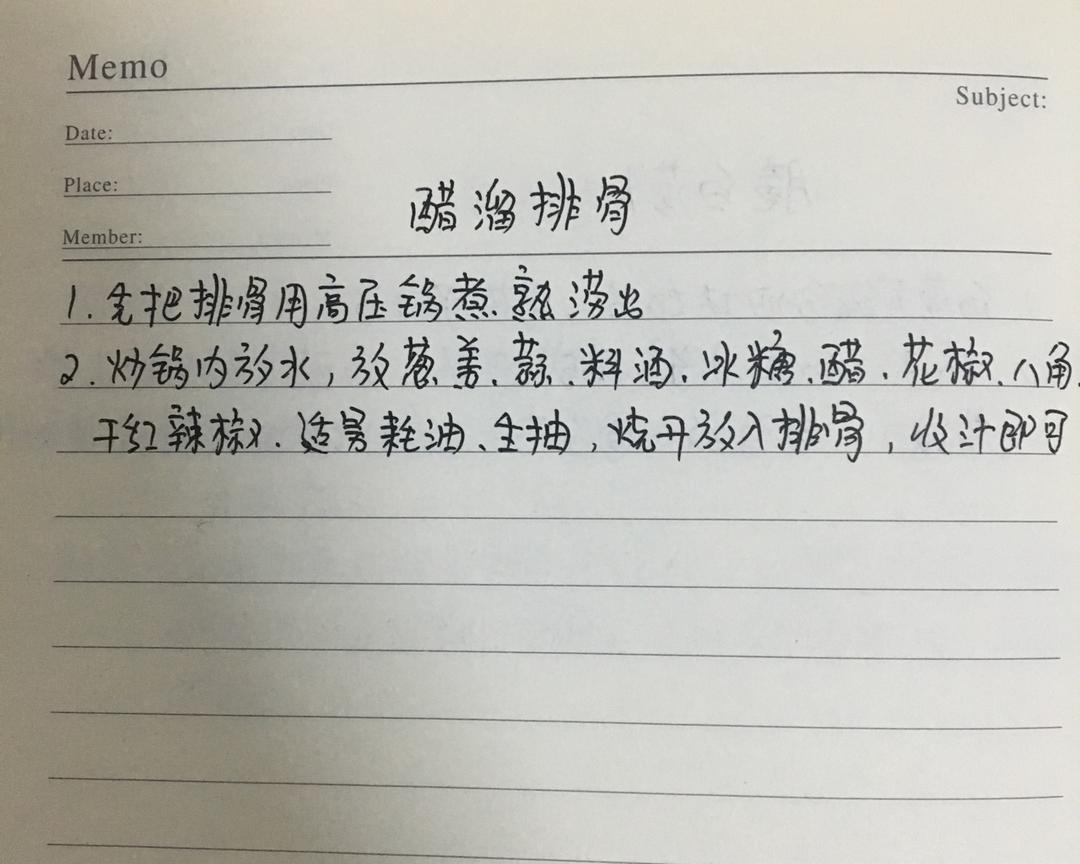 Memo
Subject:
Date:
Place:
Member:
醋溜排骨
1.先把排骨用高压锅煮熟涝出
2.炒锅内放水,放葱、姜、蒜、料酒、冰糖、醋、花椒、八角、
干红辣椒、适量耗油、生抽,烧开放入排骨,收汁即可